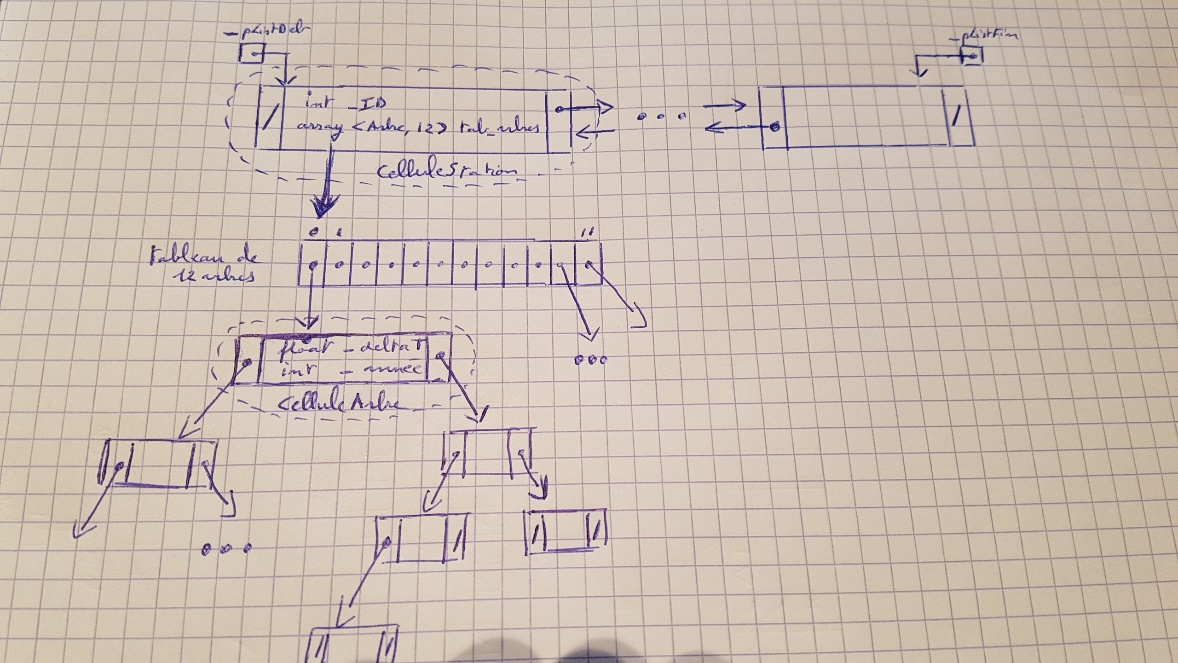 _pListDeb
_pListFin
int _ID
array <Arbre, 12> tab_arbres
CelluleStation
0 1 11
Tableau de
12 arbres
float _deltaT
int _annee
CelluleArbre